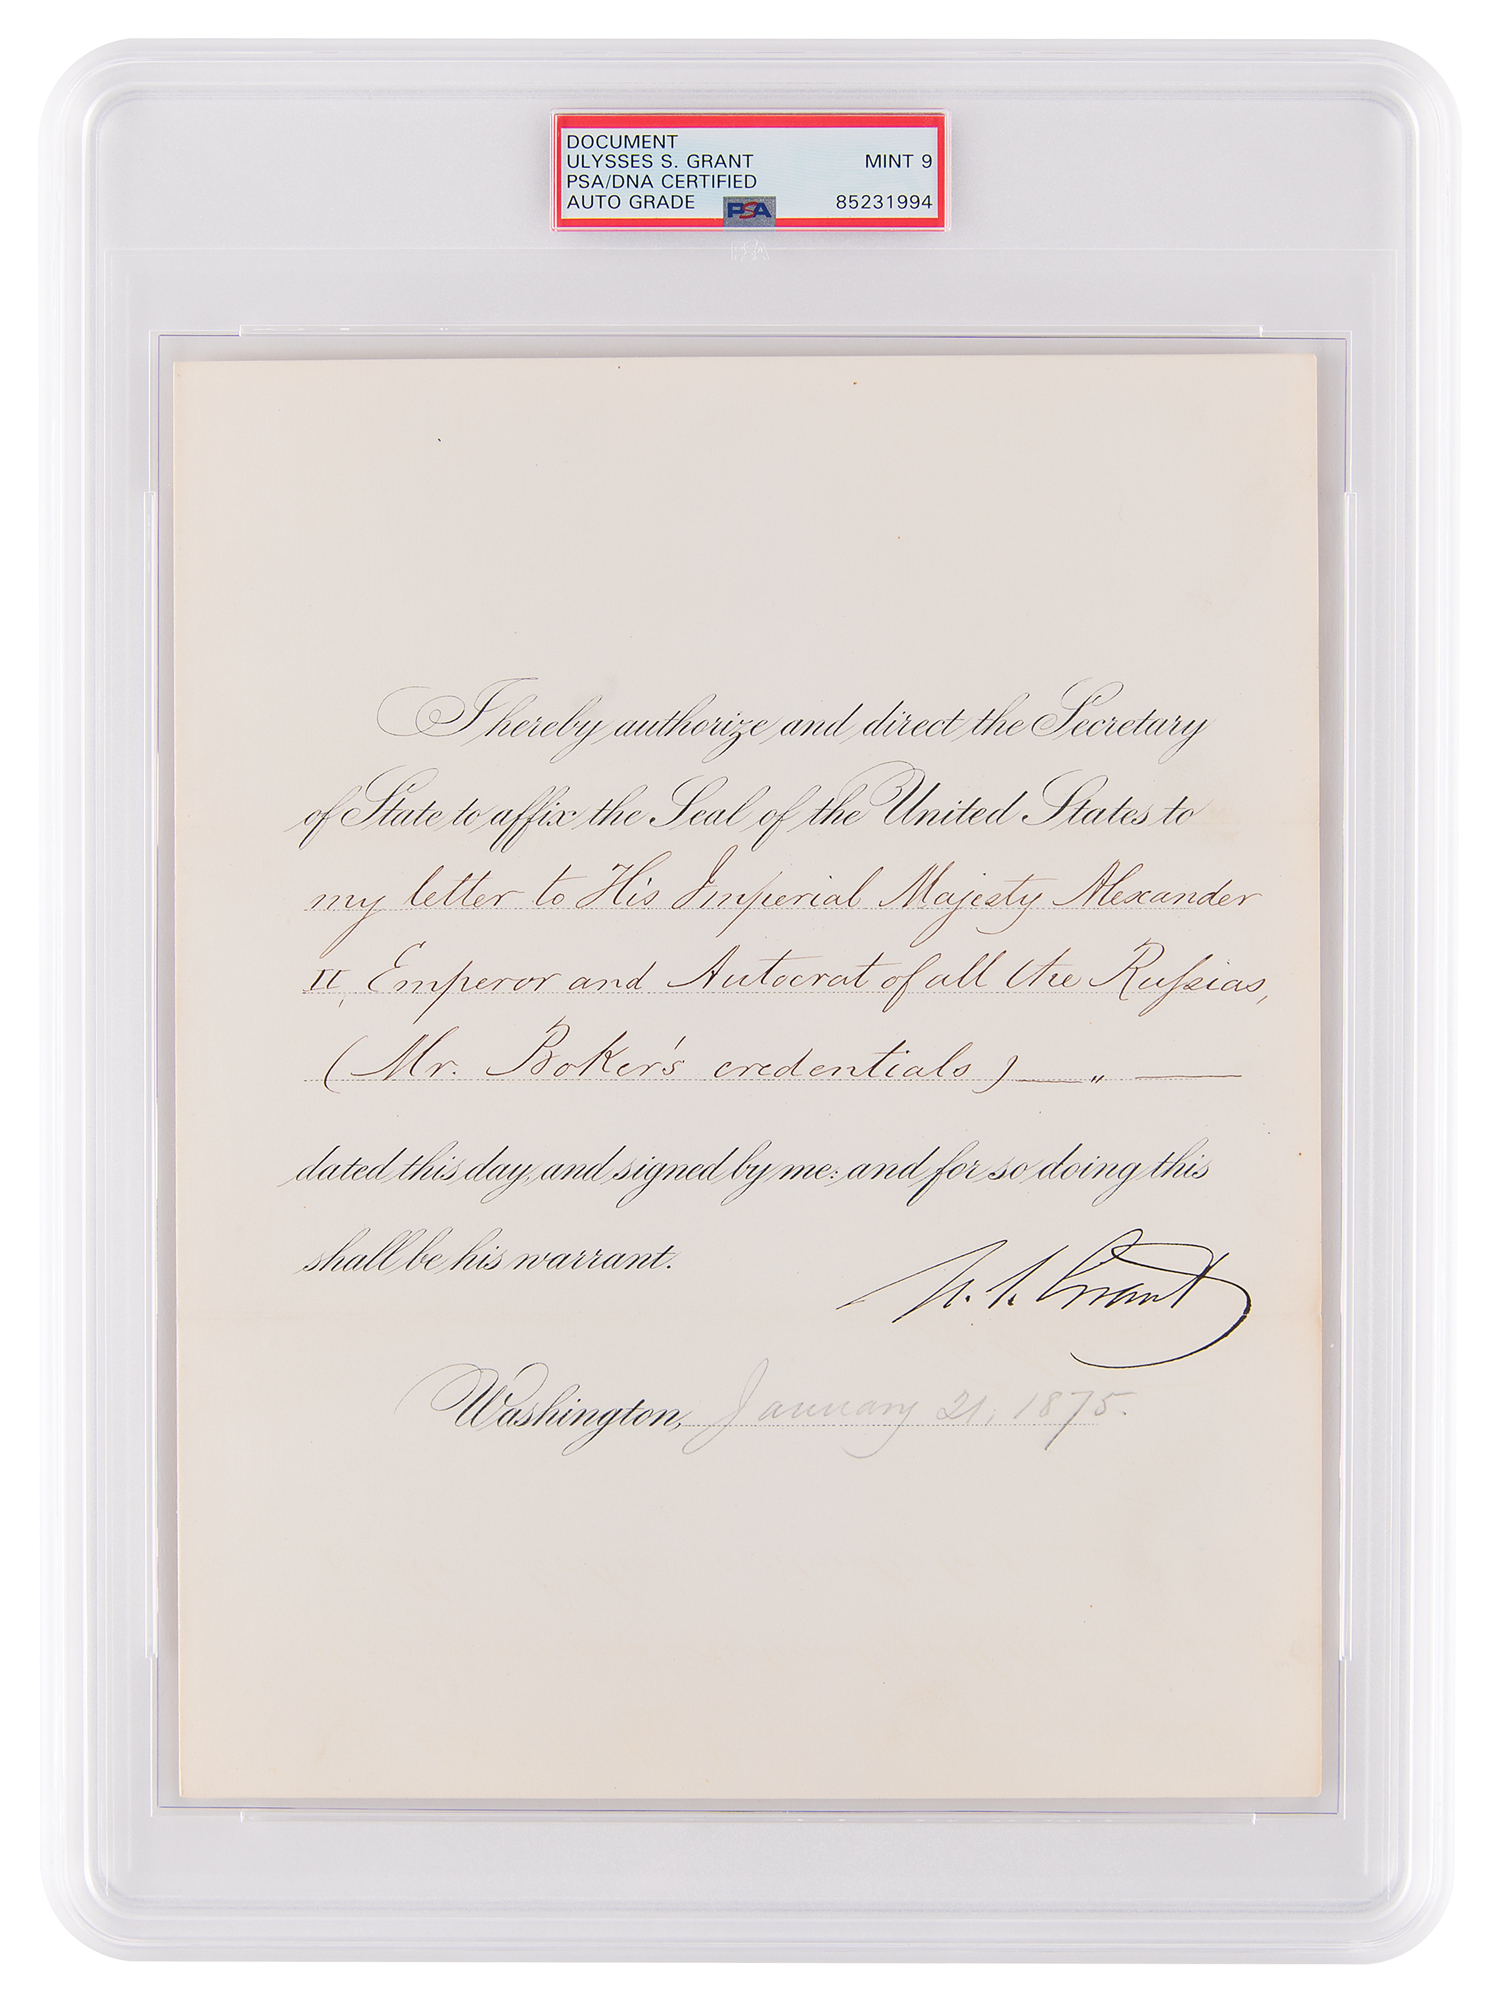 DOCUMENT
ULYSSES S. GRANT MINT 9
PSA/DNA CERTIFIED
AUTO GRADE PSA 85231994
PSA
I hereby authorize and direct the Secretary
of State to affix the Seal of the United States to
my letter to His Imperial Majesty Alexander
II, Emperor and Autocrat of all the Rußias,
(Mr. Boker's credentials) — " —
dated this day, and signed by me: and for so doing this
shall be his warrant.
U. S. Grant
Washington, January 21, 1875.